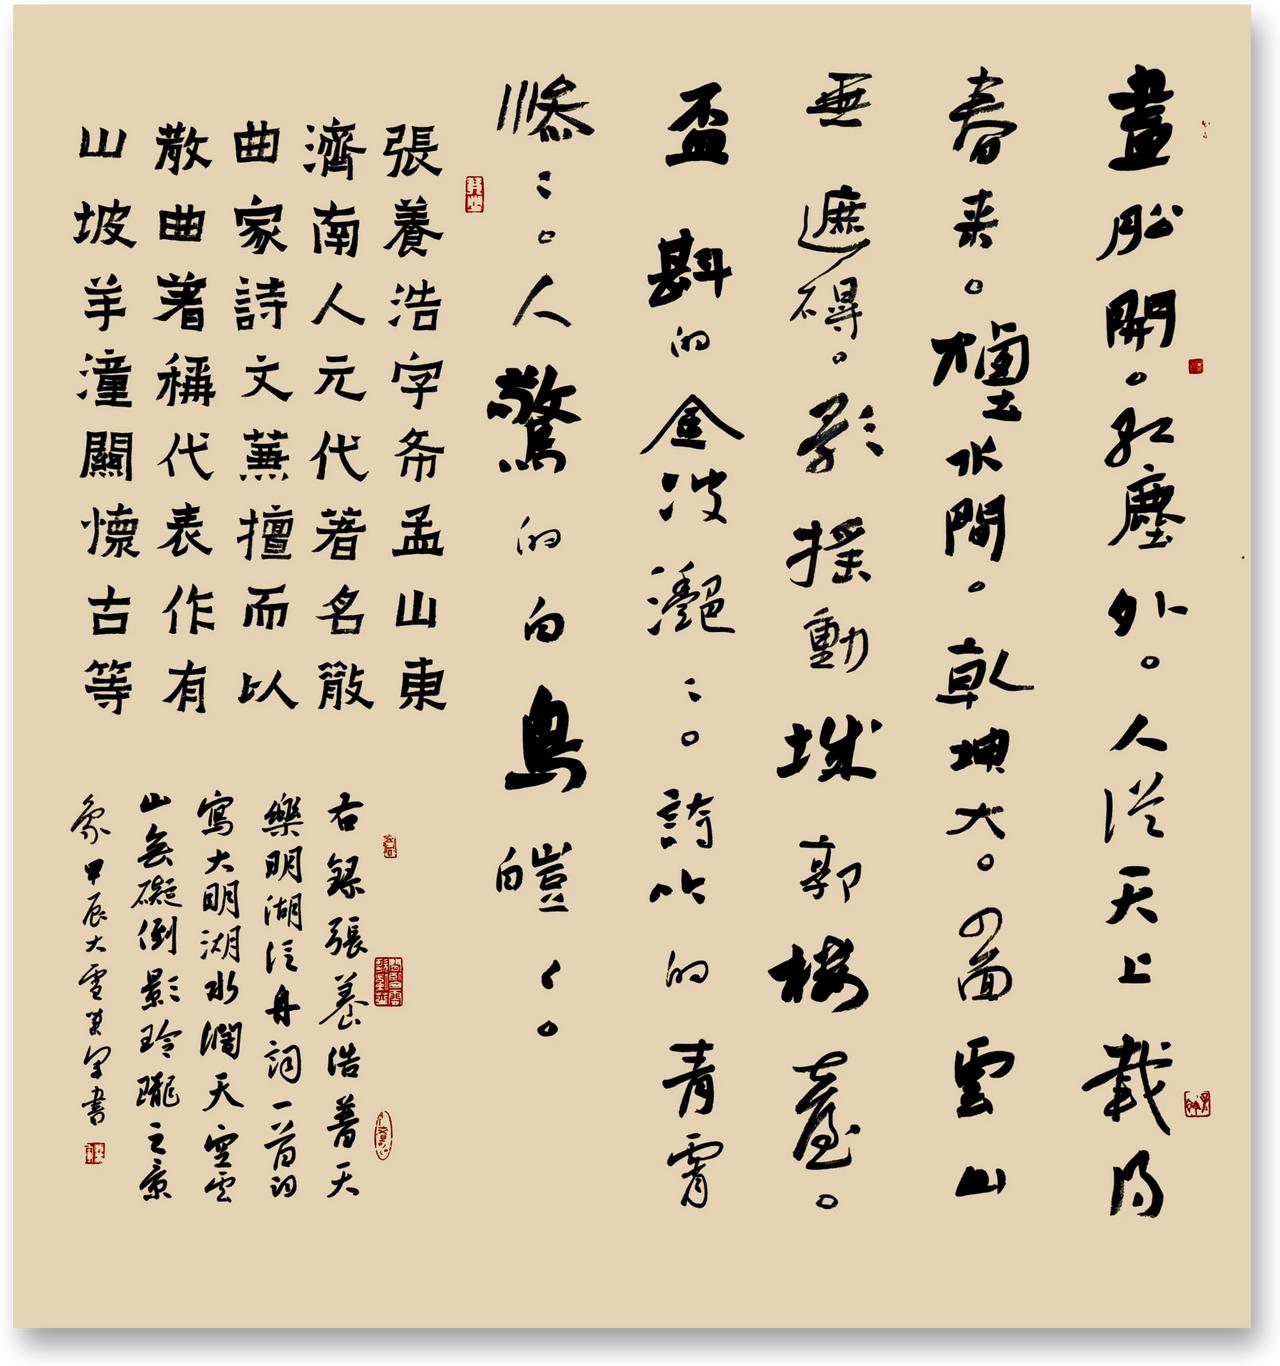 畫船開。紅塵外。人從天上載得
春来。煙水間。乾坤大。四面雲山
無遮碍。影摇動城郭楼臺。
盃斟的金波灩〻。詩吟的青霄
慘〻。人驚的白鳥皚〻。
張養浩字希孟山東
濟南人元代著名散
曲家詩文兼擅而以
散曲著稱代表作有
山坡羊潼關懷古等
右録張養浩普天
樂明湖泛舟詞一首詞
寫大明湖水闊天空雲
山無礙倒影玲瓏之景
象甲辰大雪書